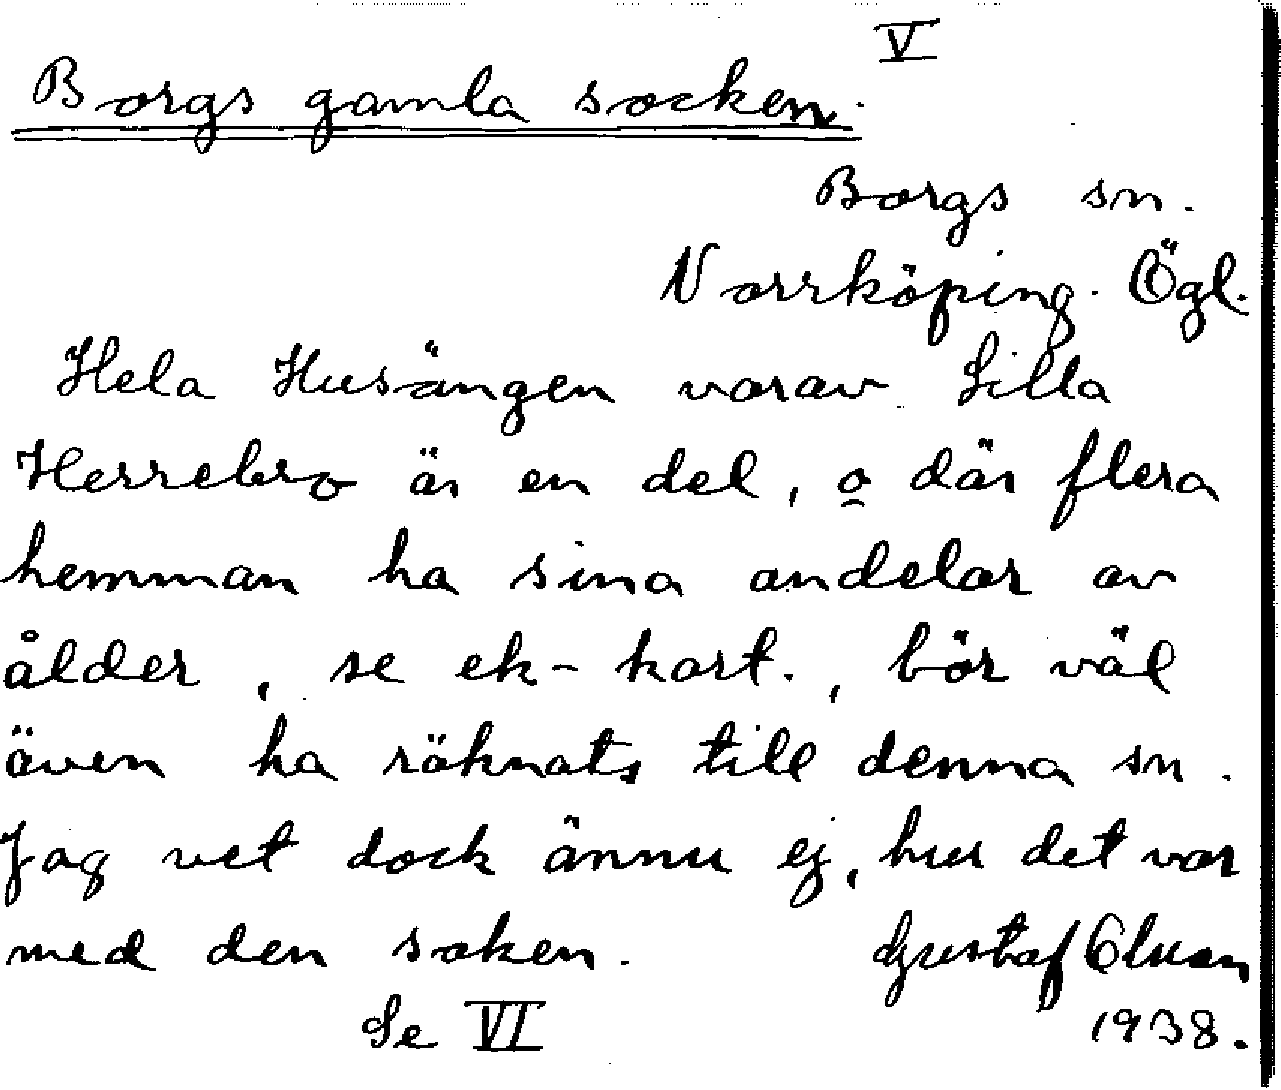 V
Borgs gamla socken.
Borgs sn.
Norrköping. Ögl.
Hela Husängen varav Lilla
Herrebro är en del, o där flera
hemman ha sina andelar av
ålder, se ek-kart., bör väl
även ha räknats till denna sn.
Jag vet dock ännu ej, hur det var
med den saken. Gustaf
Se VI 1938.